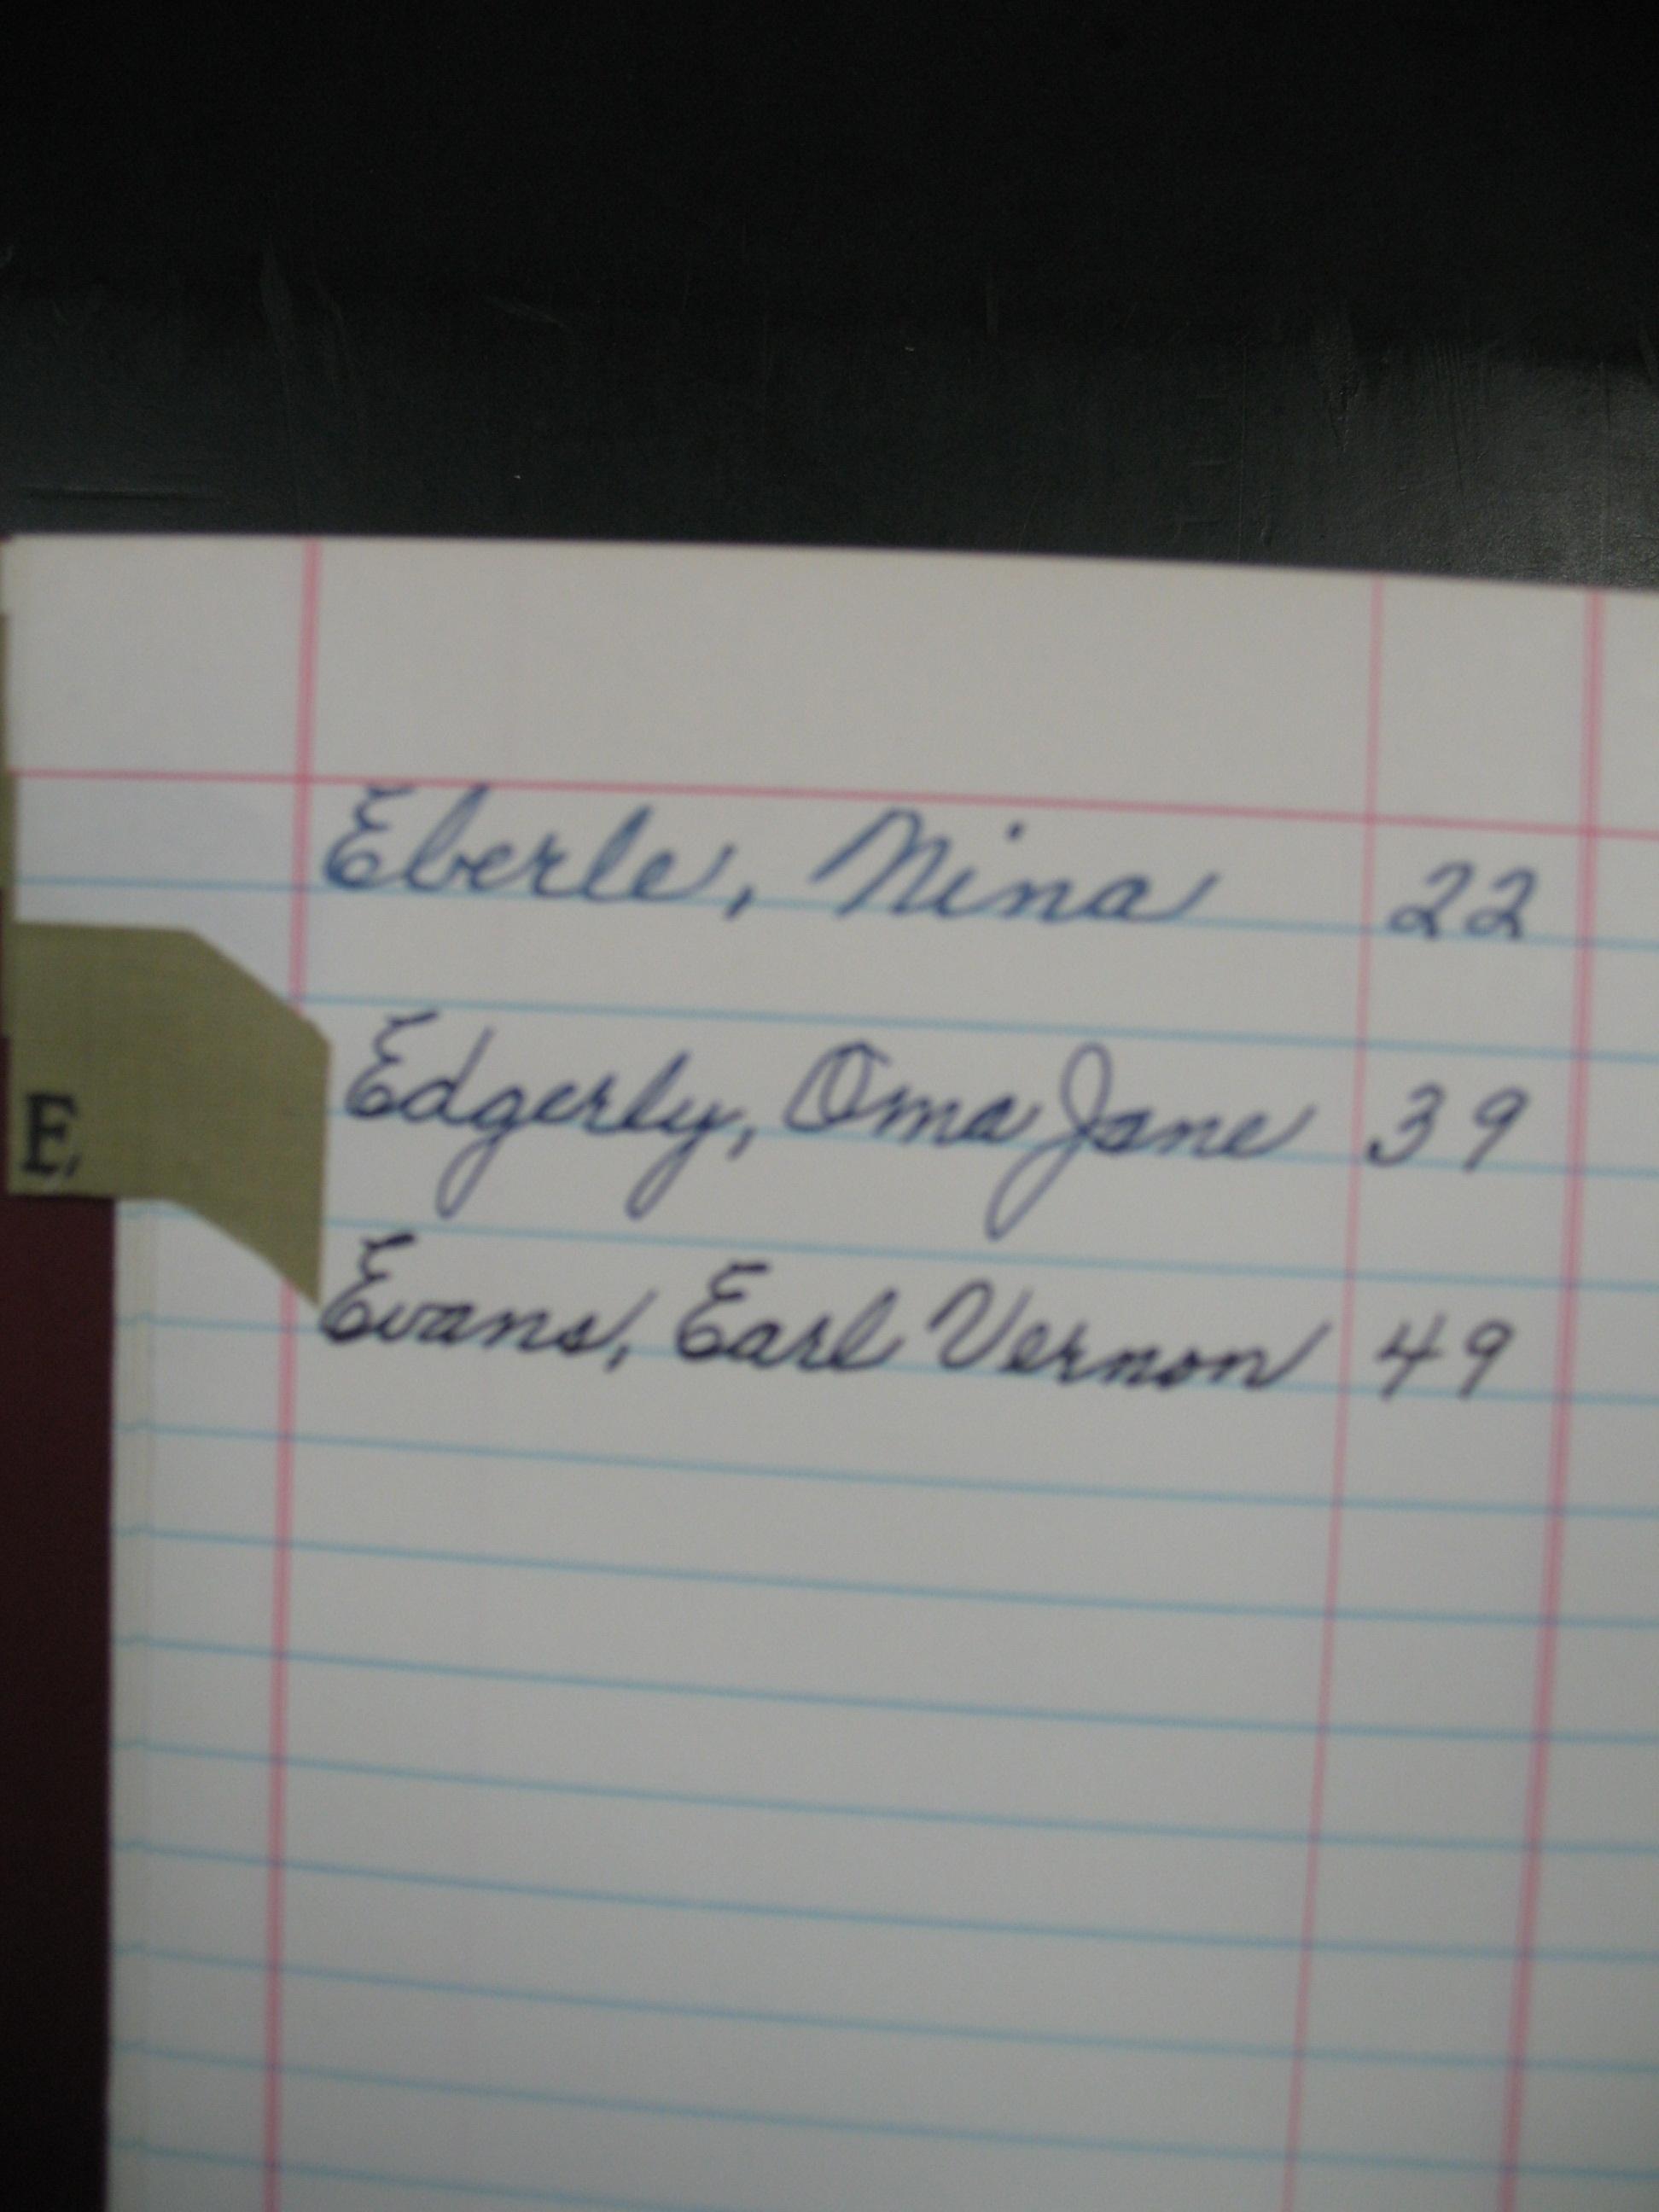 Eberle, Nina 22
Edgerly, Oma Jane 39
E,
Evans, Earl Vernon 49